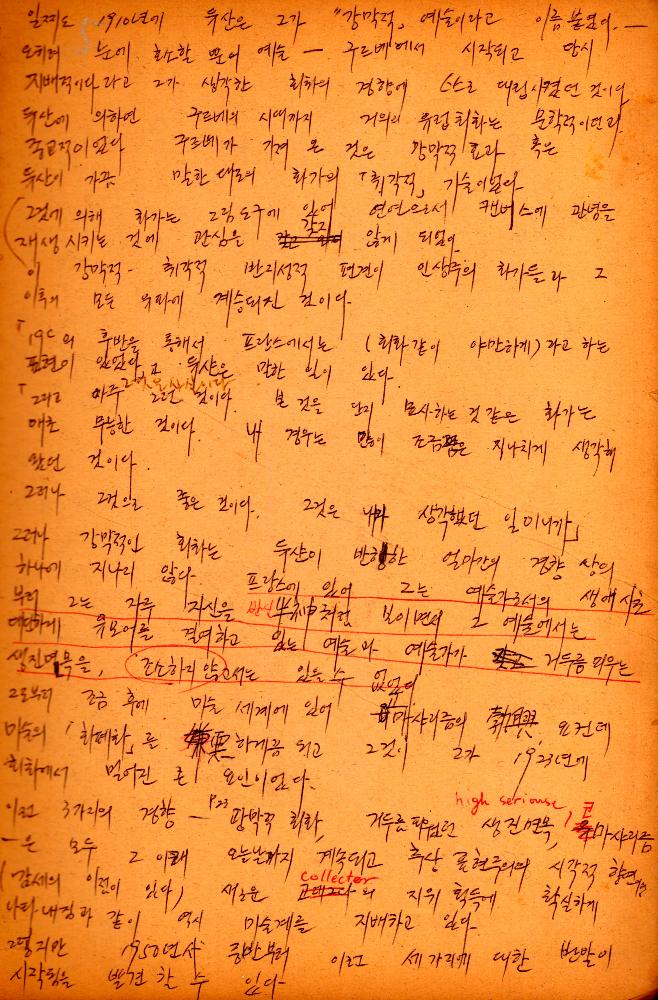 일찌도 1910년에 뒤샹은 그가 "강막적" 예술이라고 이름붙였어. —
오히려 눈에 호소할 뿐의 예술 — 구르베에서 시작되고 당시
지배적이다라고 그가 생각한 회화의 경향에 스스로 대립시켰던 것이다.
뒤샹에 의하면 구르베의 시대까지 거의의 유럽회화는 문학적이던과
종교적이었다 구르베가 가져 온 것은 강막적 효과 혹은
뒤샹이 가끔 말한 대로의 화가의 「취각적」 기술이었다.
(그것에 의해 화가는 그림도구에 있어 캔버스에 관념을
재생시키는 것에 관심을 갖지 않게 되었어.
이 강막적 - 취각적 반리성적 편견이 인상주의 화가들과 그
이후의 모든 유파에 계승되진 것이다.
「19C의 후반을 통해서 프랑스에서는 (회화같이 야만하게)라고 하는
표현이 있었다」고 뒤샹은 말한 일이 있다.
「그리고 아주 그런 것이다. 본 것을 단지 묘사하는 것같은 화가는
애초 무능한 것이다. 내 경우는 많이 조금은 지나치게 생각해
왔던 것이다.
그러나 그것으로 좋은 것이다. 그것은 내가 생각했던 일이니까」
그러나 강막적인 회화는 뒤샹이 반항한 얼마간의 경향 상의
하나에 지나지 않다. 프랑스에 있어 그는 예술가로서의 생애 시초
부터 그는 자주 자신을 처럼 보이면서 그 예술에서는
대단하게 유모어를 결여하고 있는 예술과 예술가가 거드름피우는
생진면목을, 조소하지 않고서는 있을 수 없었다
그로부터 조금 후에 미술 세계에 있어 마샤리즘의 勃興, 요컨데
미술의 「화폐화」론 하게끔 되고 그것이 그가 1923년에
회화에서 멀어진 른 요인이었다.
이런 3가지의 경향 — P23 강막적 회화, 거드름피웠던 high seriouse 생진면목, 코마샤리즘
— 은 모두 그 이래 오늘날까지 계속되고 추상 표현주의의 시각적 향연
(감세의 이전이 있다) 새로운 collector의 지위 획득에 확실하게
나타내짐과 같이 역시 미술계를 지배하고 있다.
그렇지만 1950년사 중반부터 이런 세가지에 대한 반발이
시작됨을 발견할 수 있다—